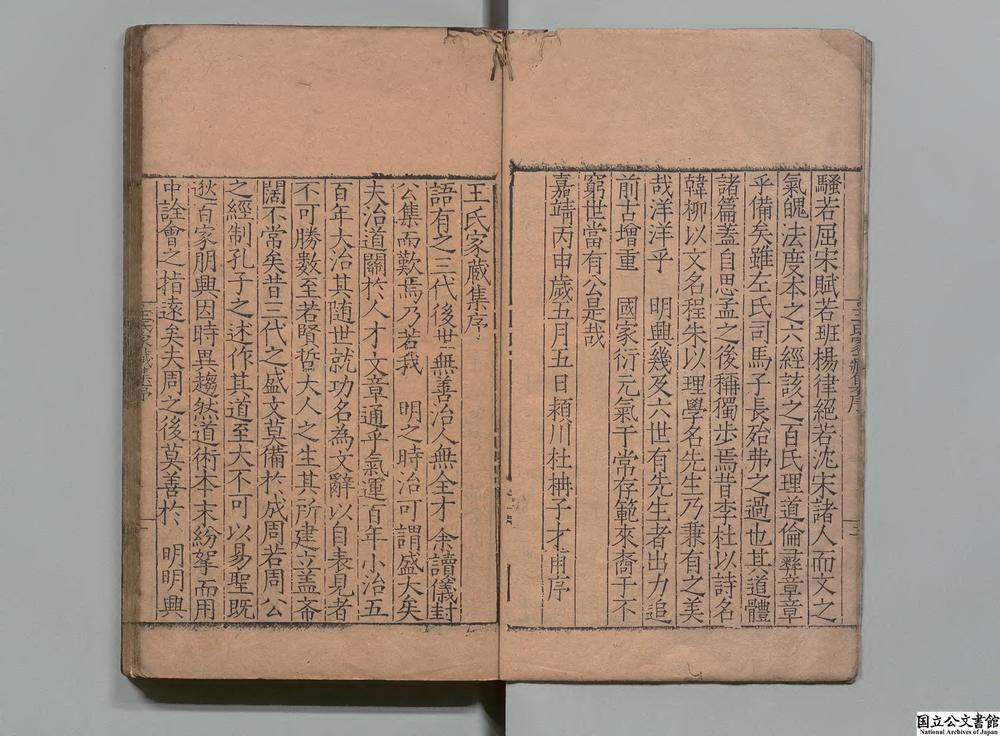 騷若屈宋賦若班楊律絕若沈宋諸人而文之
氣魄法度本之六經該之百氏理道倫彞章章
乎備矣雖左氏司馬子長殆弗之過也其道體
諸篇蓋自思孟之後稱獨步焉昔李杜以詩名
韓柳以文名程朱以理學名先生乃兼有之美
哉洋洋乎　明興幾及六世有先生者出力追
前古增重　國家衍元氣于常存範來裔于不
窮世當有公是哉
嘉靖丙申歲五月五日潁川杜柟子才甫序
王氏家藏集序
語有之三代後世無善治人無全才余讀儀封
公集而歎焉乃若我　明之時治可謂盛大矣
夫治道關於人才文章通乎氣運百年小治五
百年大治其隨世就功名為文辭以自表見者
不可勝數至若賢哲大人之生其所建立蓋齋
闊不常矣昔三代之盛文莫備於成周若周公
之經制孔子之述作其道至大不可以易聖既
逖百家朋興因時異趨然道術本末紛挐而用
中詮會之指遠矣夫周之後莫善於　明明興
王氏家藏集序
国立公文書館
National Archives of Japan